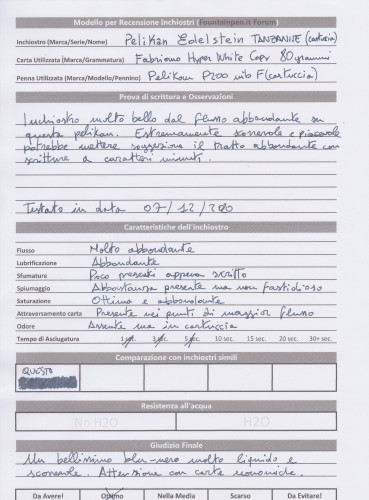 Modello per Recensione Inchiostri (Fountainpen.it Forum)
Inchiostro (Marca/Serie/Nome) Pelikan Edelstein TANZANITE (cartuccia)
Carta Utilizzata (Marca/Grammatura) Fabriano Hyper White Copy 80 grammi
Penna Utilizzata (Marca/Modello/Pennino) Pelikan P200 nib F (cartuccia)
Prova di scrittura e Osservazioni
Inchiostro molto bello dal flusso abbondante su
questa pelikan. Estremamente scorrevole e piacevole
potrebbe mettere soggezione il tratto abbondante con
scritture a caratteri minuti.
Testato in data 07/12/200
Caratteristiche dell'inchiostro
Flusso Molto abbondante
Lubrificazione Abbondante
Sfumature Poco presenti appena scritto
Spiumaggio Abbastanza presente ma non fastidioso
Saturazione Ottima e abbondante
Attraversamento carta Presente nei punti di maggior flusso
Odore Assente ma in cartuccia
Tempo di Asciugatura 1 sec. 3 sec. 5 sec. 10 sec. 15 sec. 20 sec. 30+ sec.
Comparazione con inchiostri simili
QUESTO
Resistenza all'acqua
No H2O H2O
Giudizio Finale
Un bellissimo blu-nero molto liquido e
scorrevole. Attenzione con carte economiche.
Da Avere! Ottimo Nella Media Scarso Da Evitare!